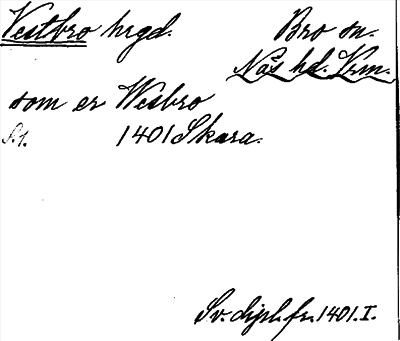 Vestbro hrgd. Bro sn.
Näs hd. Vrm.
som er Wesbro
S. 1. 1401 Skara.
Sv. dipl. fr. 1401. I.